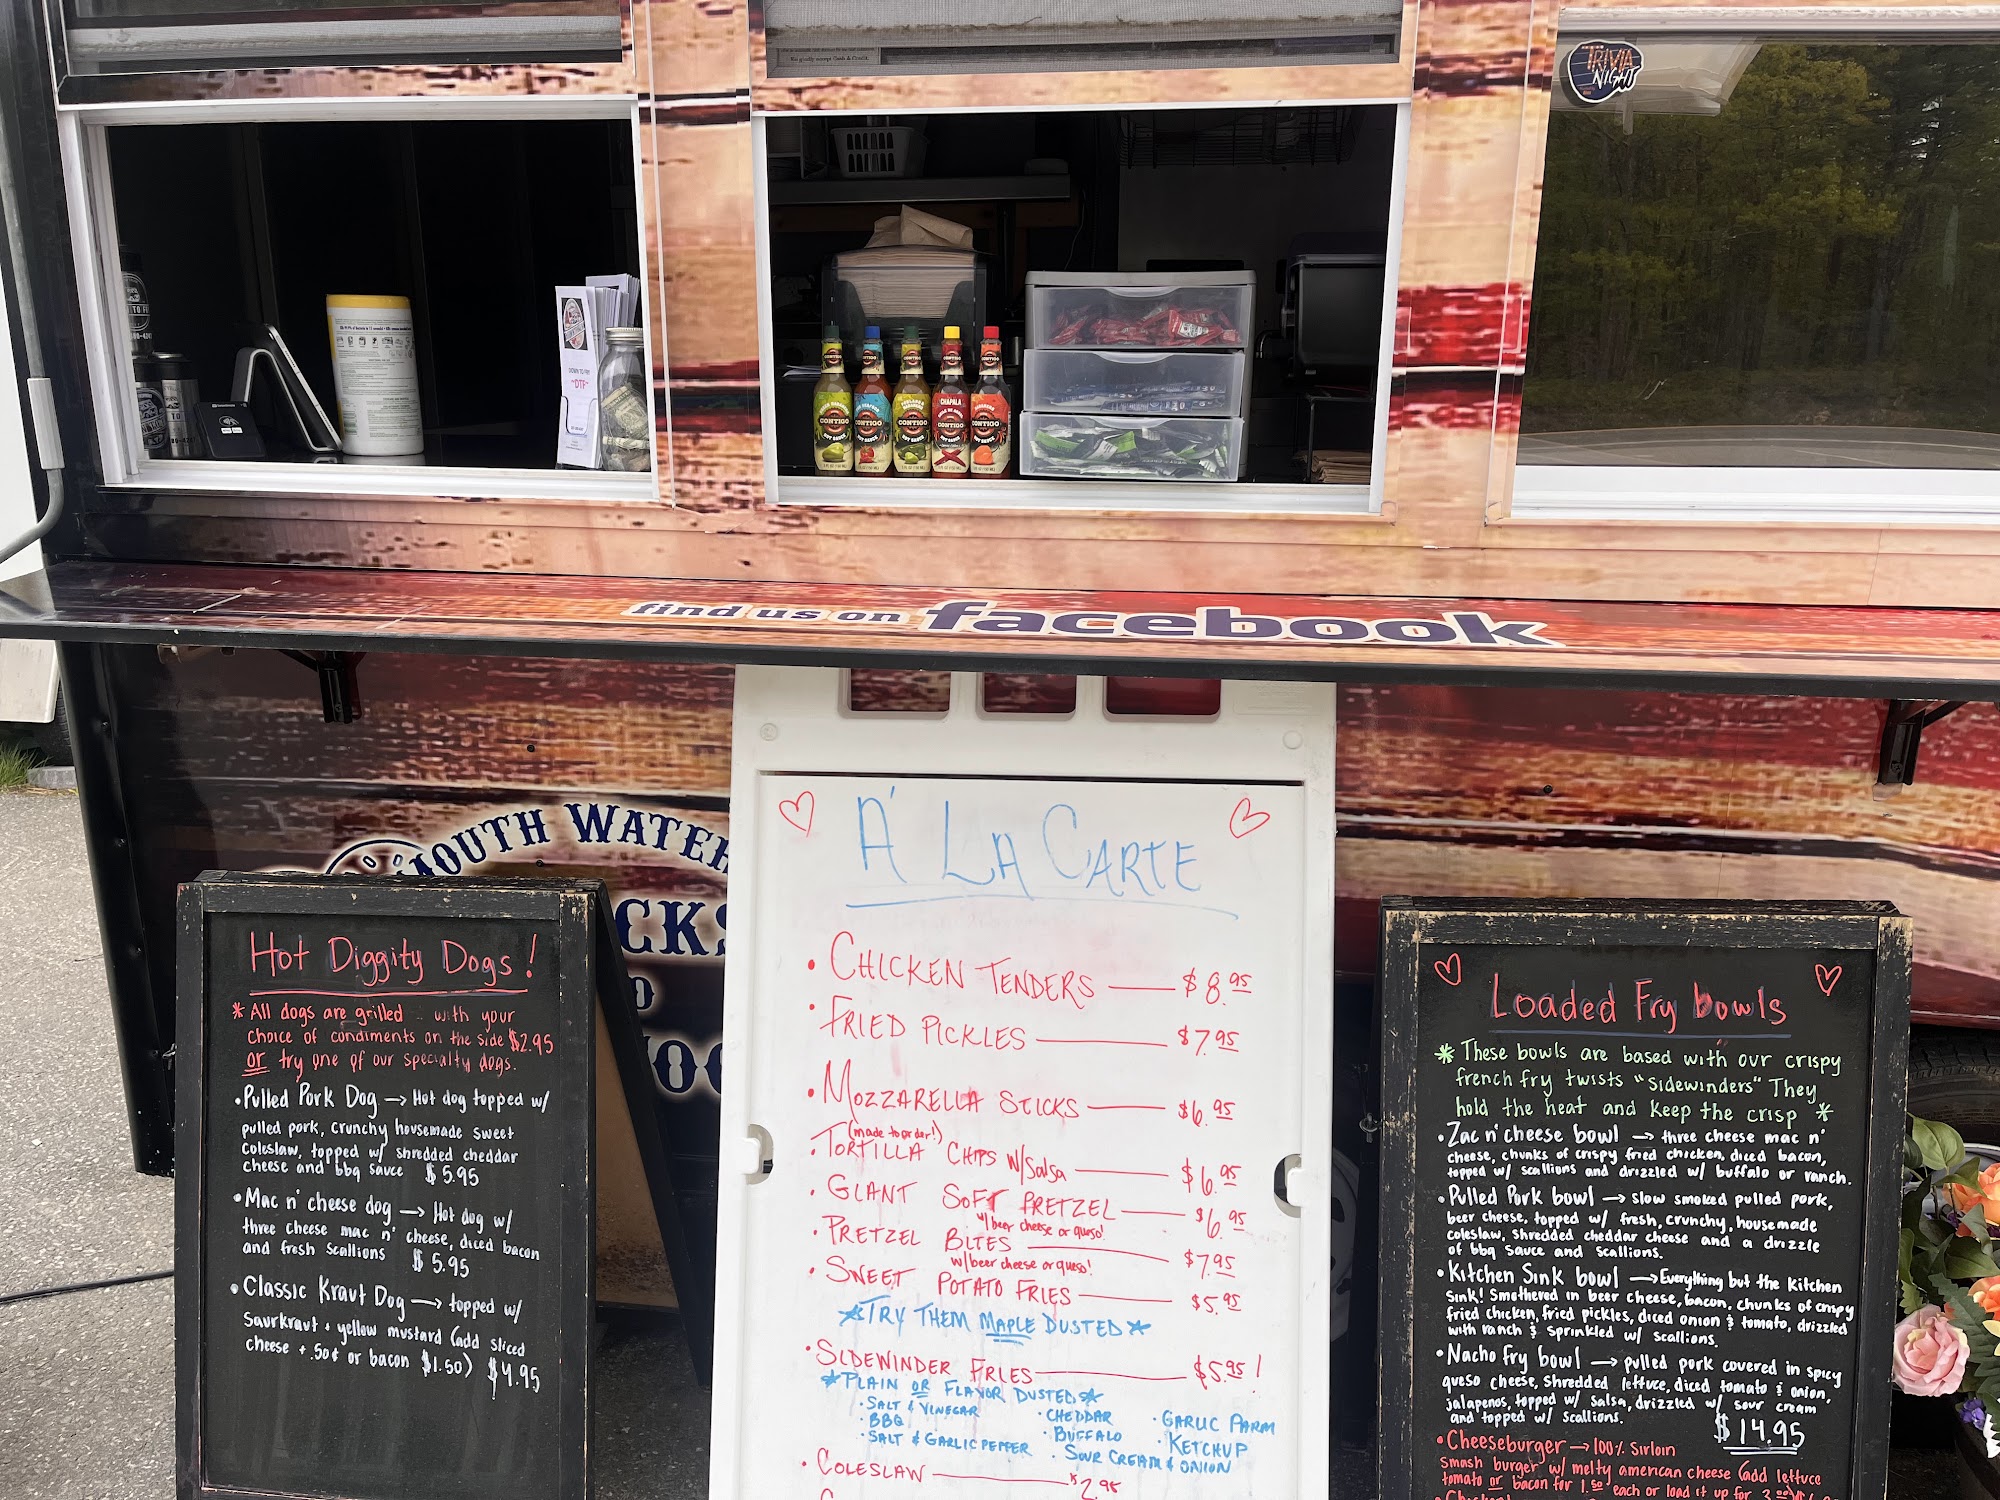 TRIVIA
NIGHT
DOWN TO FRY
~DTF~
CONTIGO
CONTIGO
CONTIGO
CHAPALA
CONTIGO
CONTIGO
find us on facebook
MOUTH WATER
CKS
Hot Diggity Dogs!
* All dogs are grilled .. with your
choice of condiments on the side $2.95
or try one of our specialty dogs.
• Pulled Pork Dog → Hot dog topped w/
pulled pork, crunchy housemade sweet
coleslaw, topped w/ shredded cheddar
cheese and bbq sauce $5.95
• Mac n' cheese dog → Hot dog w/
three cheese mac n' cheese, diced bacon
and fresh scallions $5.95
• Classic Kraut Dog → topped w/
Saurkraut + yellow mustard (add sliced
cheese + .50¢ or bacon $1.50) $4.95
A' LA CARTE
• CHICKEN TENDERS — $8.95
• FRIED PICKLES — $7.95
• MOZZARELLA STICKS — $6.95
(made to order!)
• TORTILLA CHIPS w/salsa — $6.95
• GIANT SOFT PRETZEL — $6.95
w/ beer cheese or queso!
• PRETZEL BITES — $7.95
w/beer cheese or queso!
• SWEET POTATO FRIES — $5.95
*TRY THEM MAPLE DUSTED*
• SIDEWINDER FRIES — $5.95!
*PLAIN OR FLAVOR DUSTED*
• SALT & VINEGAR • CHEDDAR • GARLIC PARM
• BBQ • BUFFALO • KETCHUP
• SALT & GARLIC PEPPER • SOUR CREAM & ONION
• COLESLAW — $2.95
Loaded Fry bowls
* These bowls are based with our crispy
french fry twists "Sidewinders" They
hold the heat and keep the crisp *
• Zac n' cheese bowl → three cheese mac n'
cheese, chunks of crispy fried chicken, diced bacon,
topped w/ scallions and drizzled w/ buffalo or ranch.
• Pulled Pork bowl → slow smoked pulled pork,
beer cheese, topped w/ fresh, crunchy, housemade
coleslaw, shredded cheddar cheese and a drizzle
of bbq sauce and scallions.
• Kitchen Sink bowl → Everything but the kitchen
sink! Smothered in beer cheese, bacon, chunks of crispy
fried chicken, fried pickles, diced onion & tomato, drizzled
with ranch & sprinkled w/ scallions.
• Nacho fry bowl → pulled pork covered in spicy
queso cheese, shredded lettuce, diced tomato & onion,
jalapenos, topped w/ salsa, drizzled w/ sour cream
and topped w/ scallions. $14.95
• Cheeseburger → 100% sirloin
smash burger w/ melty american cheese (add lettuce
tomato or bacon for 1.50 each or load it up for 3.00)